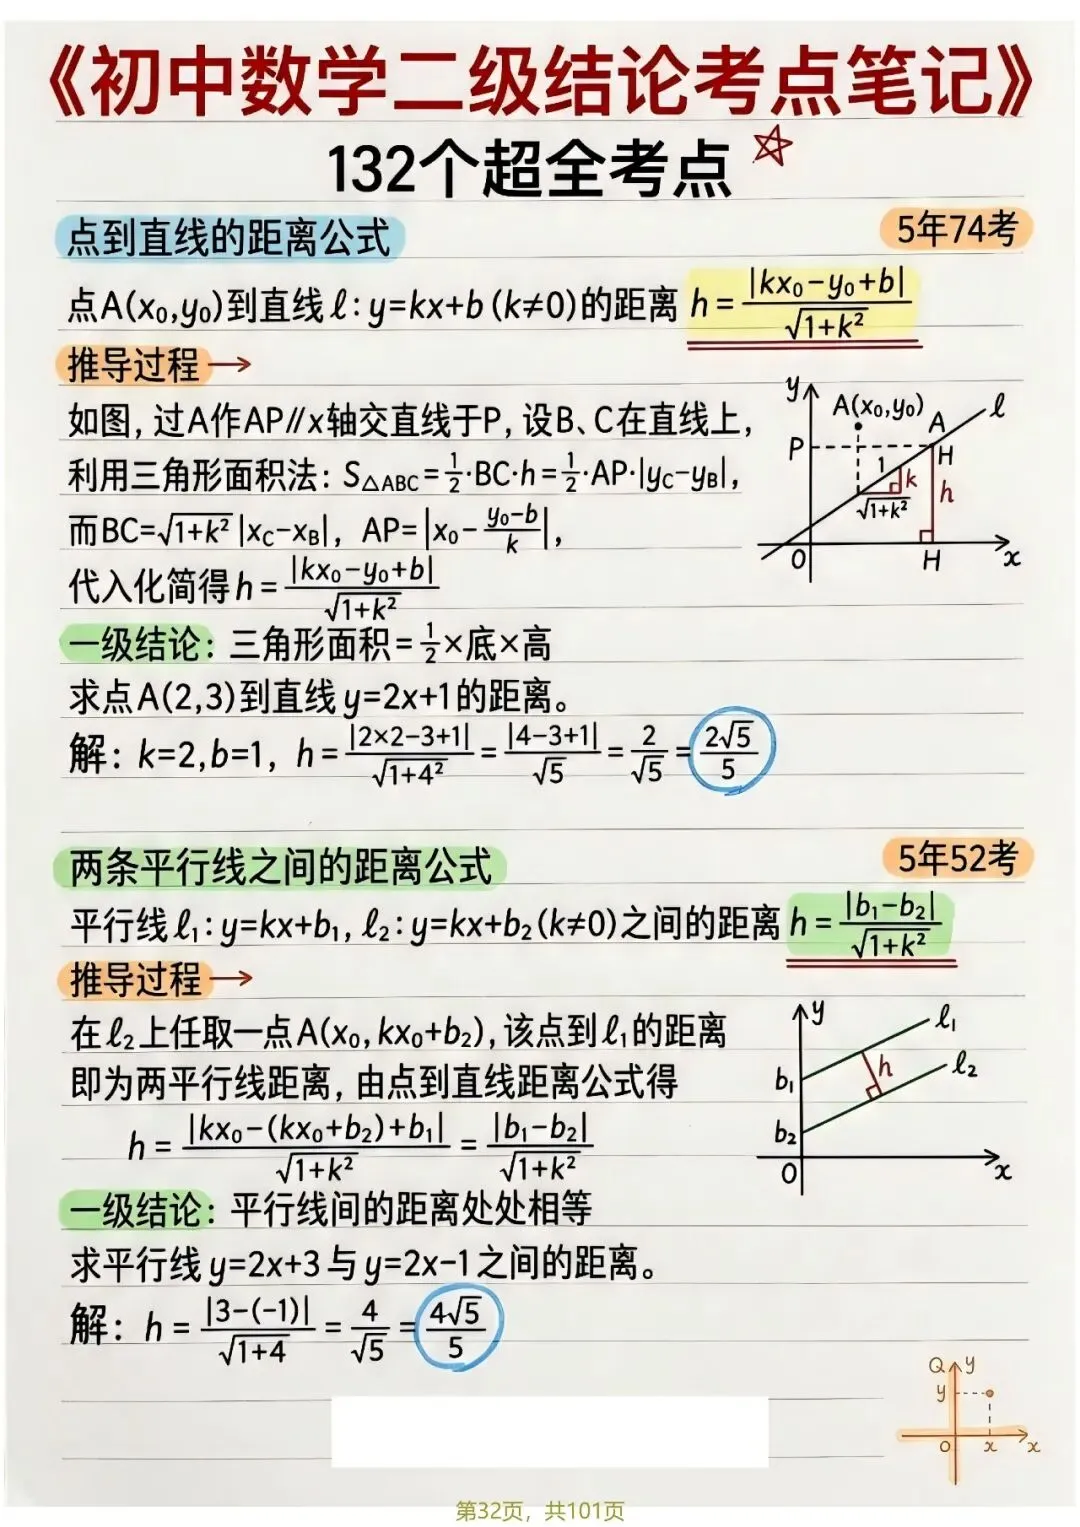 《初中数学二级结论考点笔记》
132个超全考点
点到直线的距离公式
5年74考
点A(x₀,y₀)到直线ℓ:y=kx+b(k≠0)的距离 h=|kx₀-y₀+b|/√1+k²
推导过程→
如图,过A作AP∥x轴交直线于P,设B、C在直线上,
利用三角形面积法:S△ABC=1/2·BC·h=1/2·AP·|yC-yB|,
而BC=√1+k²|xC-xB|, AP=|x₀-(y₀-b)/k|,
代入化简得h=|kx₀-y₀+b|/√1+k²
y
A(x₀,y₀)
A
ℓ
P
H
1
k
h
√1+k²
O
H
x
一级结论:三角形面积=1/2×底×高
求点A(2,3)到直线y=2x+1的距离。
解:k=2,b=1, h=|2×2-3+1|/√1+4²=|4-3+1|/√5=2/√5=2√5/5
两条平行线之间的距离公式
5年52考
平行线ℓ₁:y=kx+b₁,ℓ₂:y=kx+b₂(k≠0)之间的距离 h=|b₁-b₂|/√1+k²
推导过程→
在ℓ₂上任取一点A(x₀,kx₀+b₂),该点到ℓ₁的距离
即为两平行线距离,由点到直线距离公式得
h=|kx₀-(kx₀+b₂)+b₁|/√1+k²=|b₁-b₂|/√1+k²
y
ℓ₁
h
ℓ₂
b₁
b₂
O
x
一级结论:平行线间的距离处处相等
求平行线y=2x+3与y=2x-1之间的距离。
解:h=|3-(-1)|/√1+4=4/√5=4√5/5
Q y
y
O x x
第32页，共101页